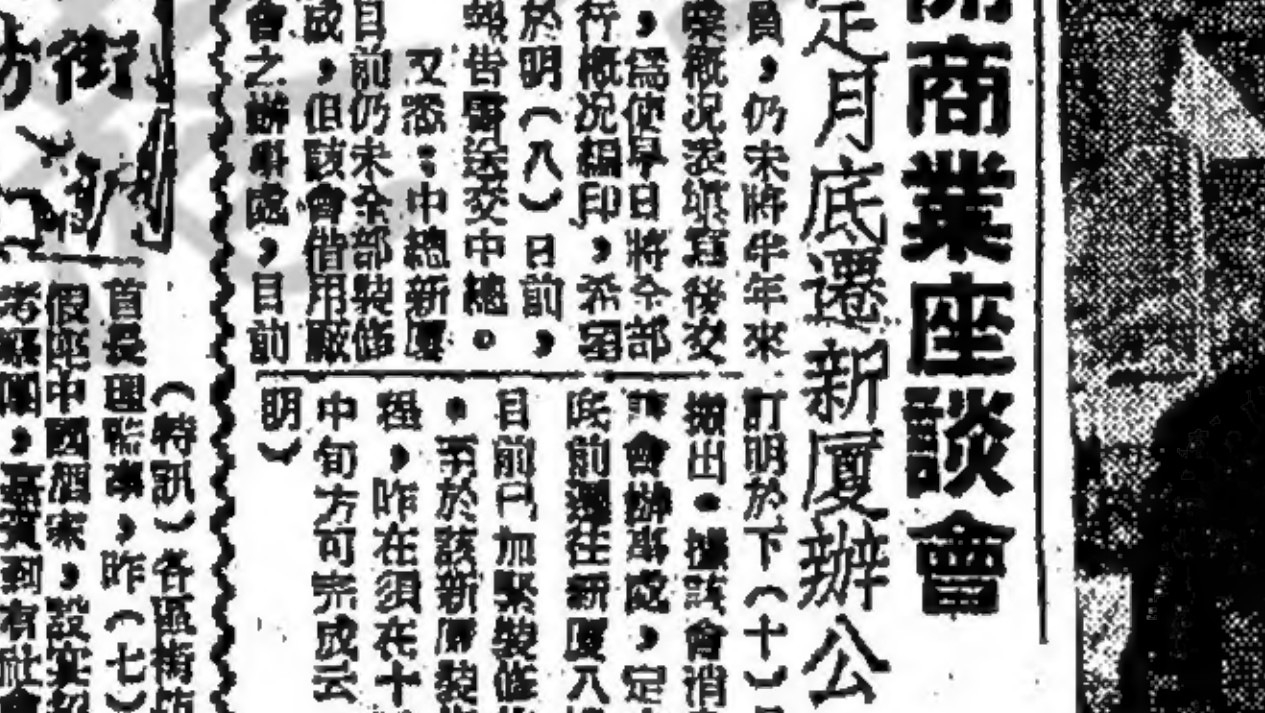 開商業座談會
定月底遷新廈辦公
員，仍未將半年來
業概況表填寫後交
，為使早日將全部
行概況編印，希望
於明（八）日前，
報告書送交中總。
又悉：中總新廈
目前仍未全部裝修
成，但該會借用廠
會之辦事處，目前
訂明於下（十）
出。據該會消
會辦事處，定
底前遷往新廈八
目前已加緊裝修
。至於該新廈裝
程，昨在須在十
中旬方可完成云
明）
街
（特訊）各區街坊
首長理監事，昨（七）
假座中國酒家，設宴
到有社會